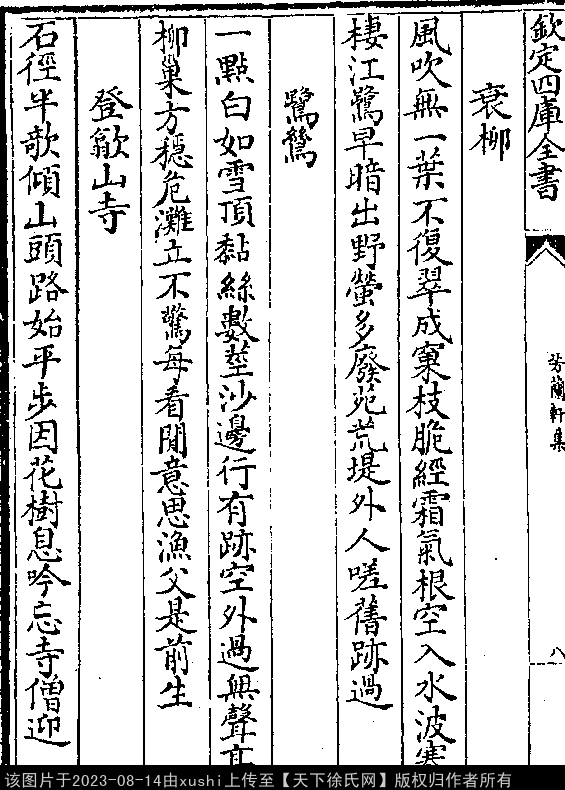 欽定四庫全書
芳蘭軒集
八
衰柳
風吹無一葉不復翠成窠枝脆經霜氣根空入水波寒
棲江鷺早暗出野螢多廢苑荒堤外人嗟舊跡過
鷺鷥
一點白如雪頂黏絲數莖沙邊行有跡空外過無聲高
柳巢方穩危灘立不驚每看閒意思漁父是前生
登歙山寺
石徑半欹傾山頭路始平步因花樹息吟忘寺僧迎
该图片于2023-08-14由xushi上传至【天下徐氏网】版权归作者所有